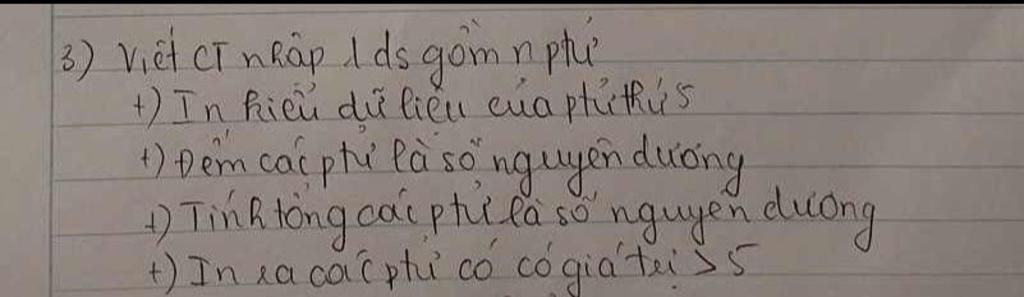 3) Viết CT nhập 1 ds gồm n ptử
+) In kiểu dữ liệu của ptử thứ 5
+) Đếm các ptử là số nguyên dương
+) Tính tổng các ptử là số nguyên dương
+) In ra các ptử có có giá trị > 5